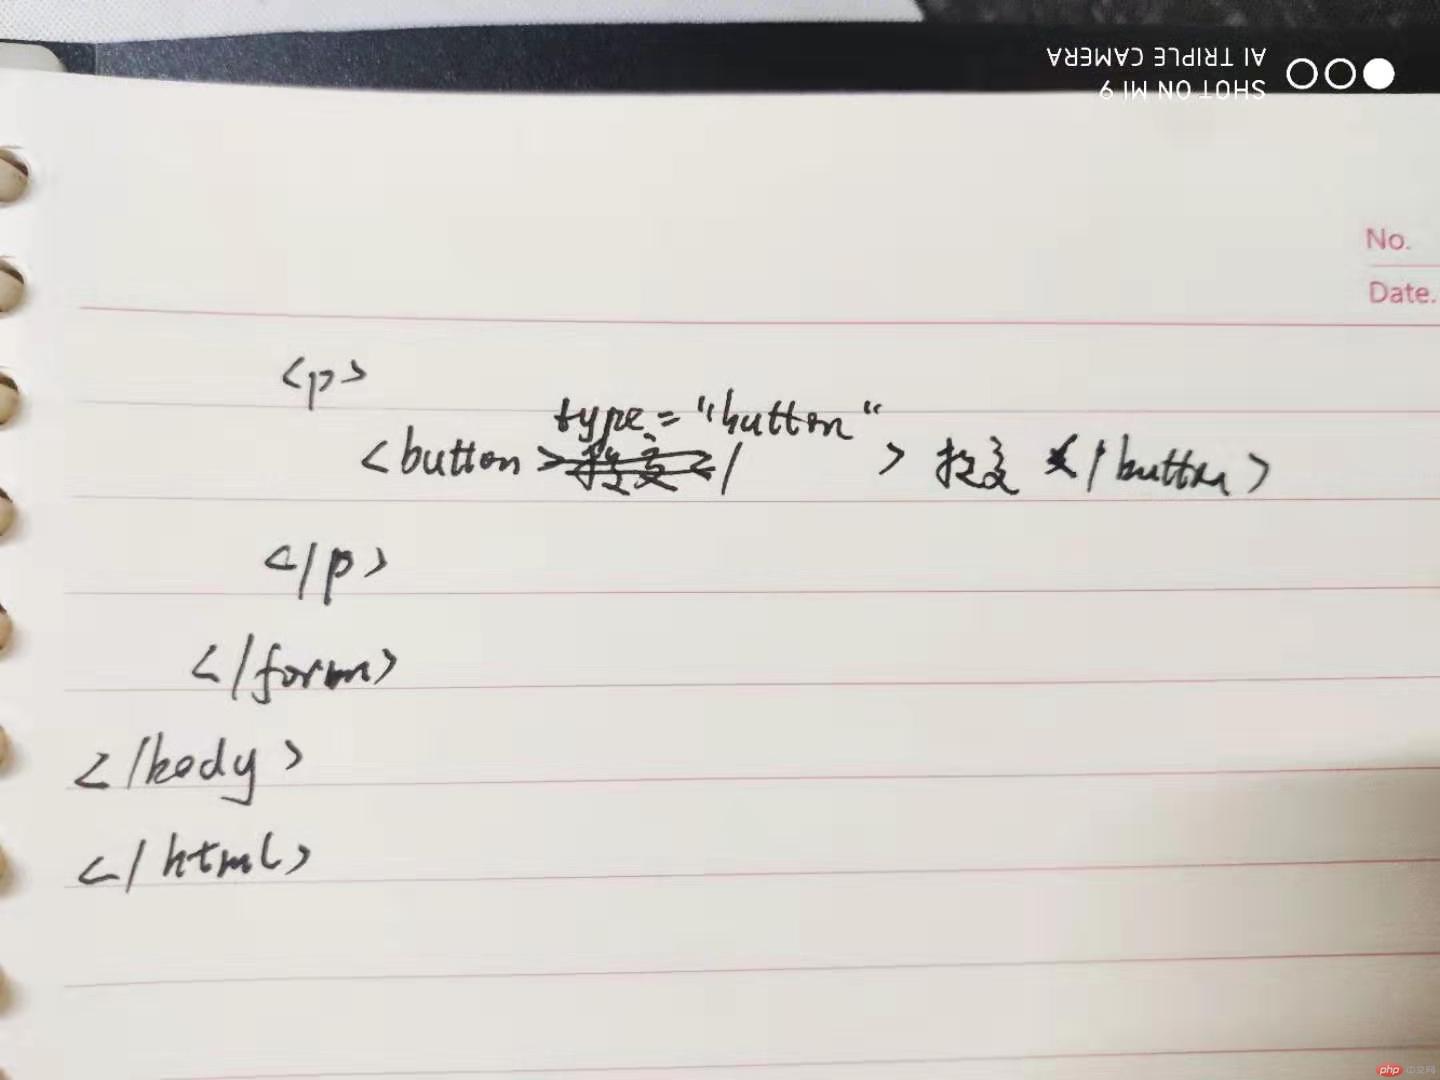 SHOT ON MI 9
AI TRIPLE CAMERA
No.
Date.
<p>
<button type="button"> 投交 </button>
</p>
</form>
</body>
</html>
php 中文网